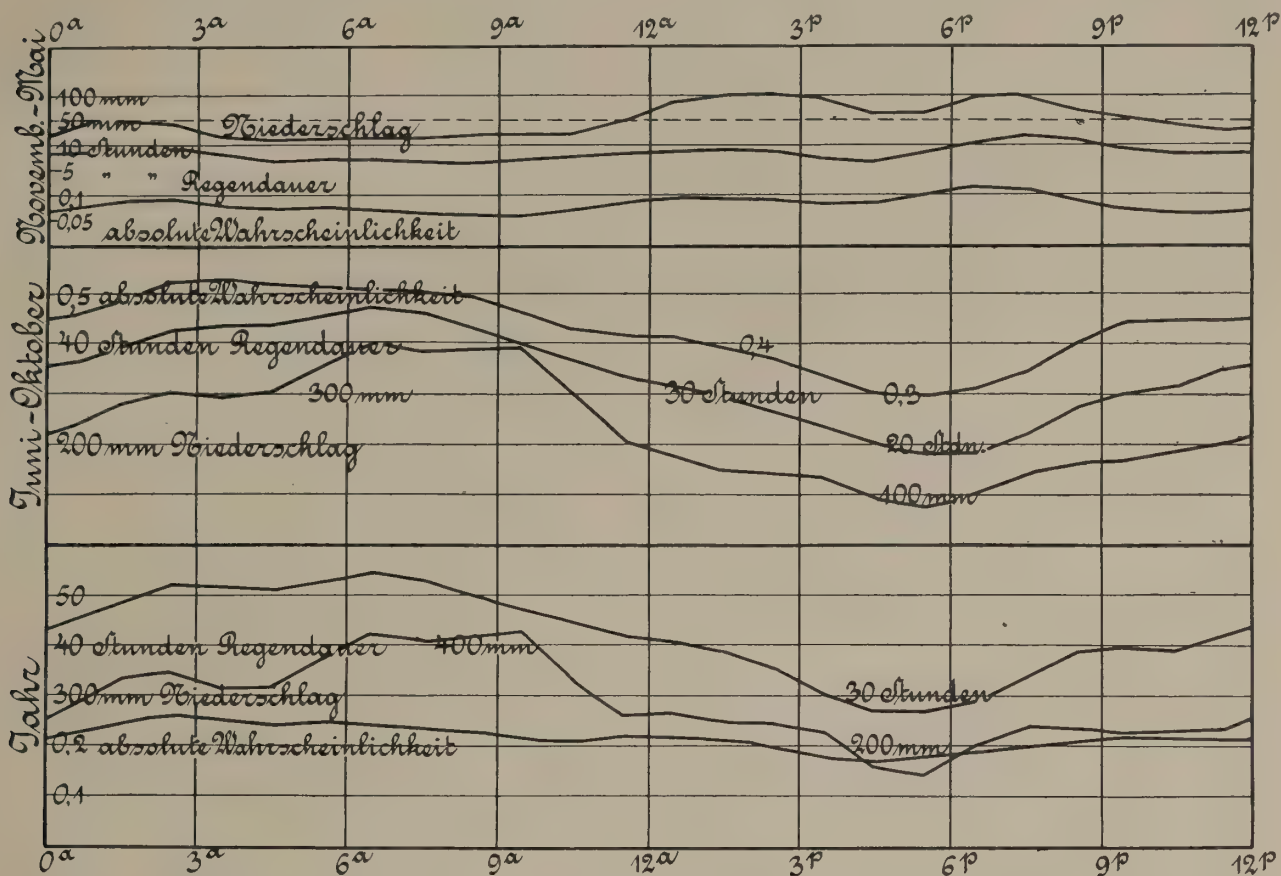 0ᵃ 3ᵃ 6ᵃ 9ᵃ 12ᵃ 3ᵖ 6ᵖ 9ᵖ 12ᵖ
Novemb.-Mai
100 mm
50 mm Niederschlag
10 Stunden
5 " " Regendauer
0,1
0,05 absolute Wahrscheinlichkeit
Juni-Oktober
0,5 absolute Wahrscheinlichkeit
40 Stunden Regendauer 0,4
300 mm 30 Stunden 0,3
200 mm Niederschlag 20 Stdn.
100 mm
Jahr
50
40 Stunden Regendauer 400 mm
300 mm Niederschlag 30 Stunden
0,2 absolute Wahrscheinlichkeit 200 mm
0,1
0ᵃ 3ᵃ 6ᵃ 9ᵃ 12ᵃ 3ᵖ 6ᵖ 9ᵖ 12ᵖ